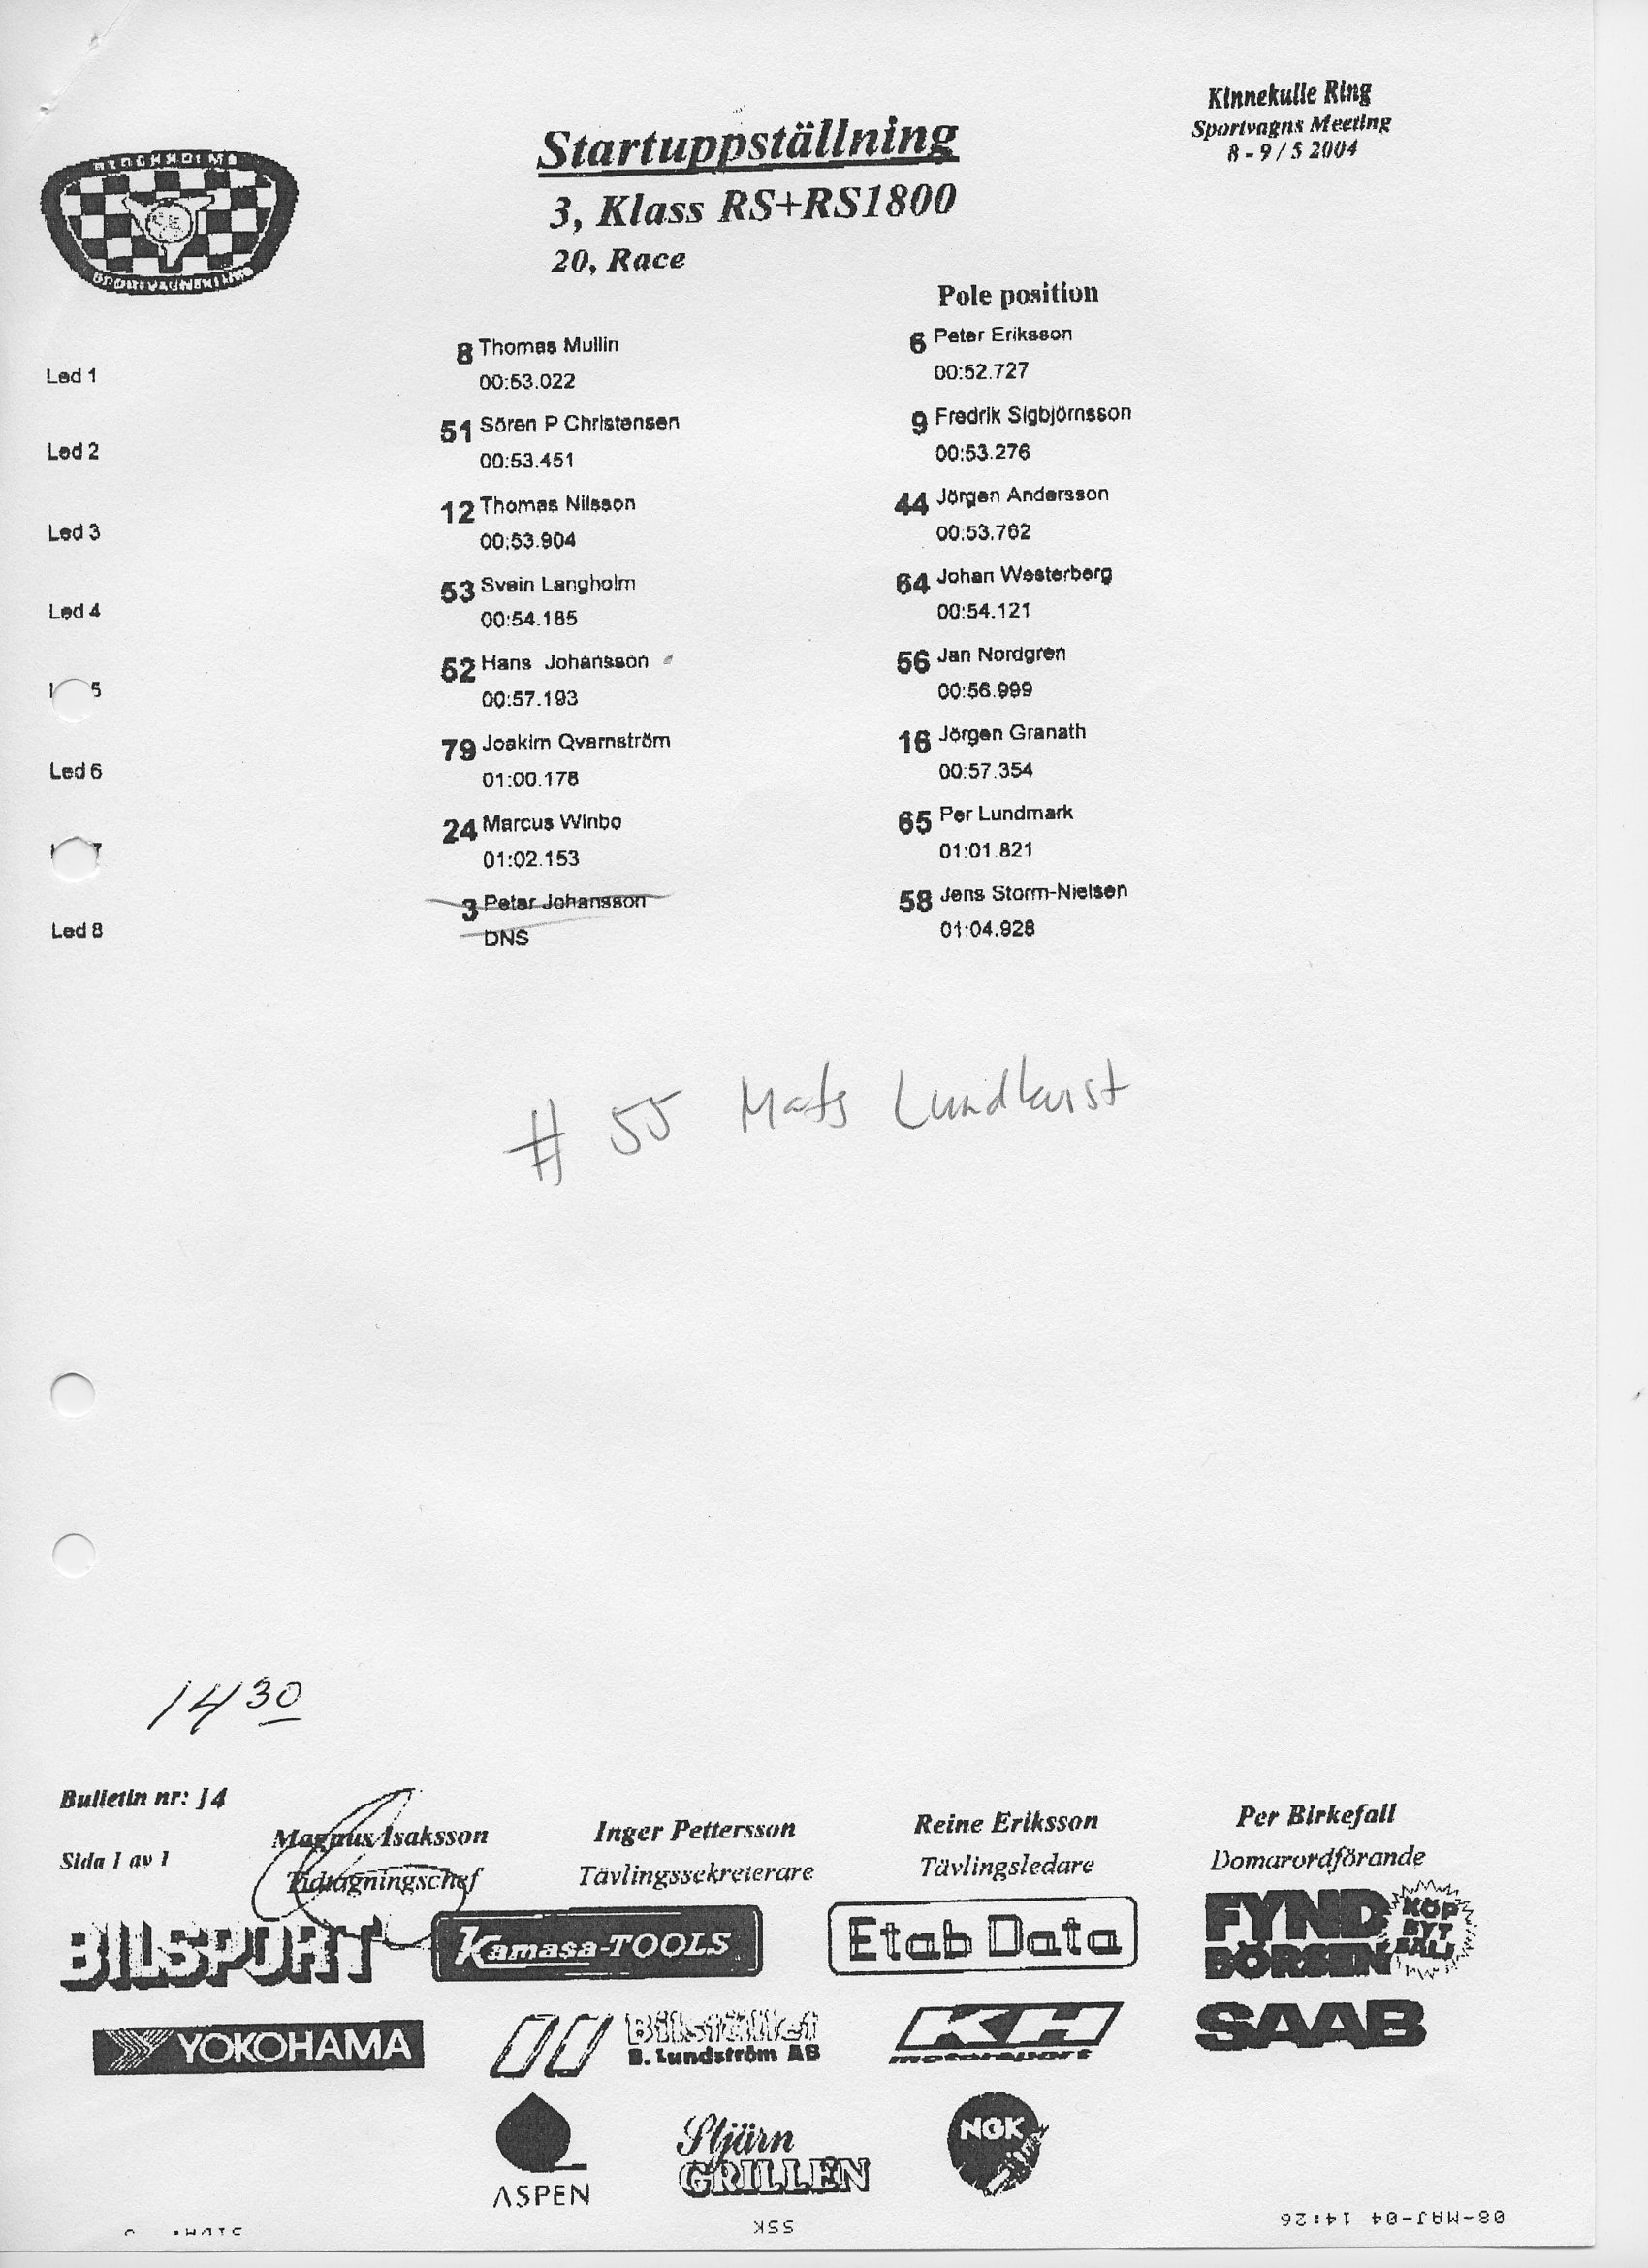 Kinnekulle Ring
Sportvagns Meeting
8 - 9 / 5 2004
Startuppställning
3, Klass RS+RS1800
20, Race
STOCKHOLMS
SPORTVAGNSKLUBB
Pole position
Led 1
8 Thomas Mullin
00:53.022
6 Peter Eriksson
00:52.727
Led 2
51 Sören P Christensen
00:53.451
9 Fredrik Sigbjörnsson
00:53.276
Led 3
12 Thomas Nilsson
00:53.904
44 Jörgen Andersson
00:53.762
Led 4
53 Svein Langholm
00:54.185
64 Johan Westerberg
00:54.121
5
52 Hans Johansson
00:57.193
56 Jan Nordgren
00:56.999
Led 6
79 Joakim Qvarnström
01:00.178
16 Jörgen Granath
00:57.354
7
24 Marcus Winbo
01:02.153
65 Per Lundmark
01:01.821
Led 8
3 Peter Johansson
DNS
58 Jens Storm-Nielsen
01:04.928
# 55 Mats Lundkvist
14 30
Bulletin nr: 14
Sida 1 av 1
Magnus Isaksson
Tidtagningschef
Inger Pettersson
Tävlingssekreterare
Reine Eriksson
Tävlingsledare
Per Birkefall
Domarordförande
BILSPORT
Kamasa-TOOLS
Etab Data
FYND BÖRSEN
KÖP BYT SÄLJ
YOKOHAMA
Bilstället
B. Lundström AB
KH
motorsport
SAAB
ASPEN
Stjärn
GRILLEN
NGK
SSK
08-MAJ-04 14:26